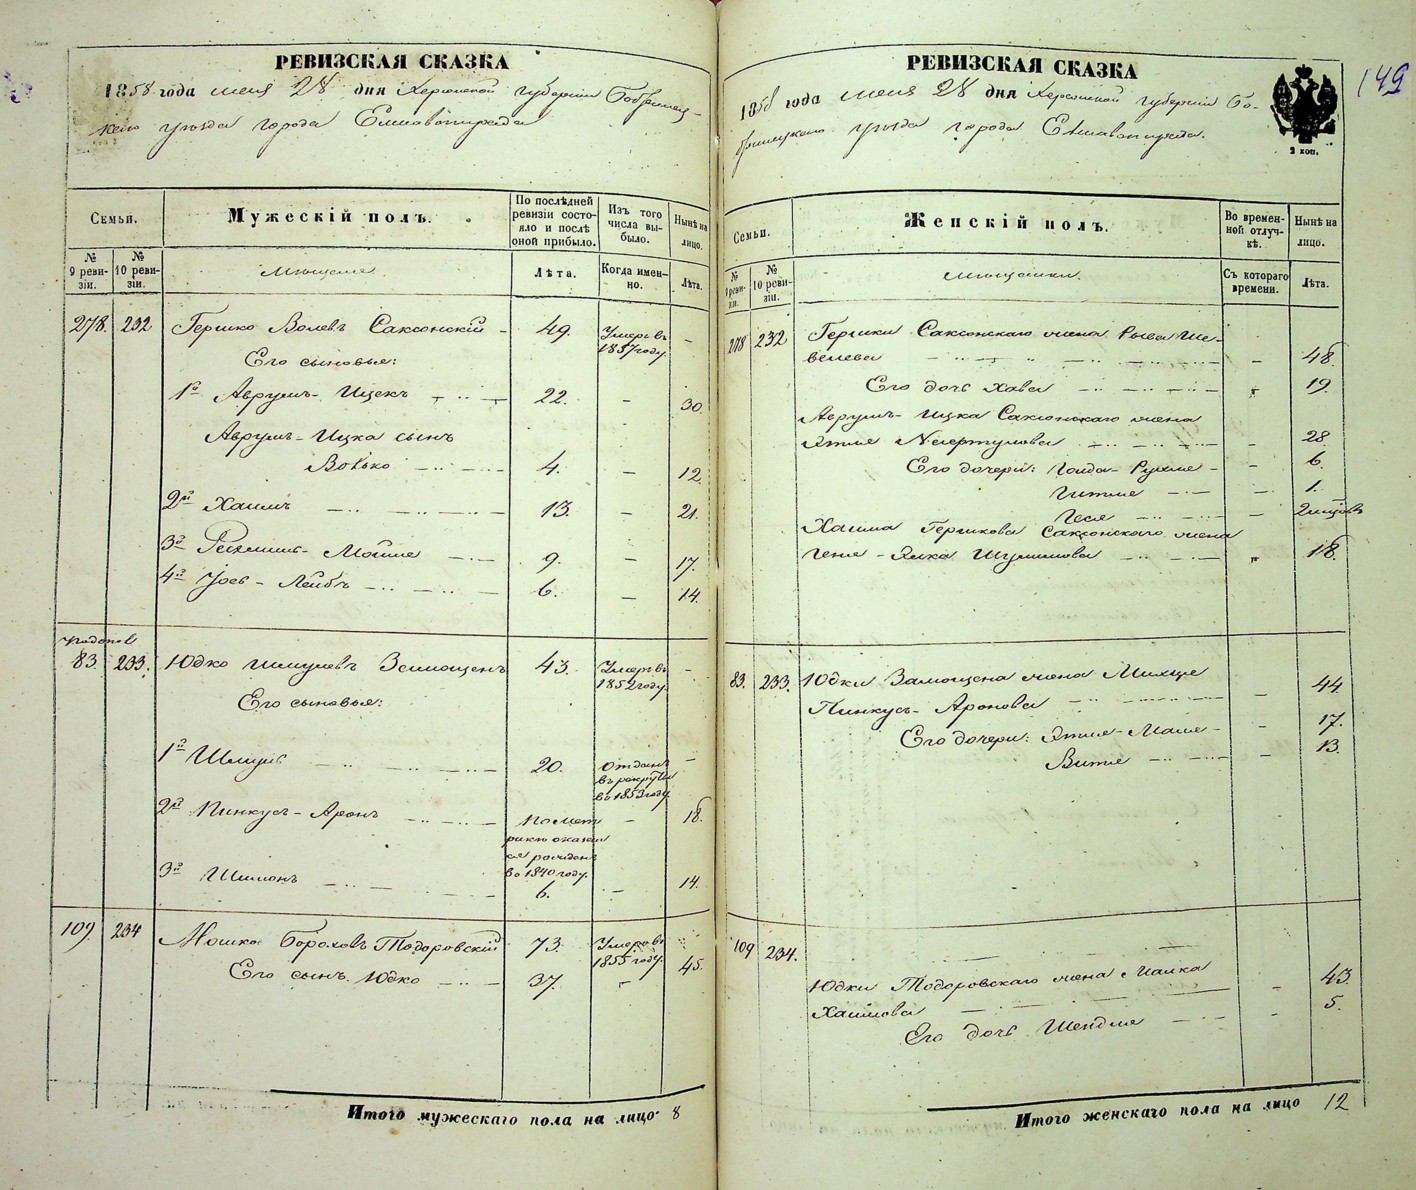 РЕВИЗСКАЯ СКАЗКА
1858 года мая 28 дня Херсонской губернии Бобринец-
каго уезда города Елисаветграда
Семьи.
Мужескій полъ.
По послѣдней ревизіи состо-яло и послѣ оной прибыло.
Изъ того числа вы-было.
Нынѣ на лицо.
№ 9 реви-зіи.
№ 10 реви-зіи.
Мещане
Лѣта.
Когда имен-но.
Лѣта.
278. 232 Гершко Волевъ Саксонскій - 49. Умеръ въ 1857 году. -
Его сыновья:
1й Аврумъ-Ицекъ 22. - 30.
Аврумъ-Ицка сынъ
Волько 4. - 12.
2й Хаимъ 13. - 21.
3й Мойше 9. - 17.
4й Лейбъ 6. - 14.
83. 233. Юдко Шмулевъ 43. Умеръ въ 1852 году. -
Его сыновья:
1й Шмуль 20. отданъ въ рекруты въ 1853 году. -
2й Пинкусъ-Аронъ по мет рике оказал ся рожден въ 1840 году. - 18.
3й Шимонъ 6. - 14.
109. 234 Мошко Борохов Тодоровскій 73. Умеръ въ 1855 году.
Его сынъ Юдко 37. - 45.
Итого мужескаго пола на лицо 8
149
РЕВИЗСКАЯ СКАЗКА
1858 года мая 28 дня Херсонской губернии Бо-
бринецкаго уезда города Елисаветграда.
2 коп.
Семьи.
Женскій полъ.
Во времен-ной отлуч-кѣ.
Нынѣ на лицо.
№ 9 реви-зіи.
№ 10 реви-зіи.
Мещанки.
Съ котораго времени.
Лѣта.
278 232 Гершки Саксонскаго жена Рыва Ше-
велева - 48.
Его дочь Хава - 19.
Аврумъ-Ицка Саксонскаго жена
28.
Его дочери: - 6.
Гитля - 1.
Геся - 2 месяцов
Хаима Гершкова Саксонскаго жена
18.
83. 233. Юдки Замощена жена
Пинкусъ-Аронова - 44
Его дочери: - 17.
- 13.
109 234.
Юдки Тодоровскаго жена Малка
Хаимова - 43.
Его дочь Шендля - 5.
Итого женскаго пола на лицо 12